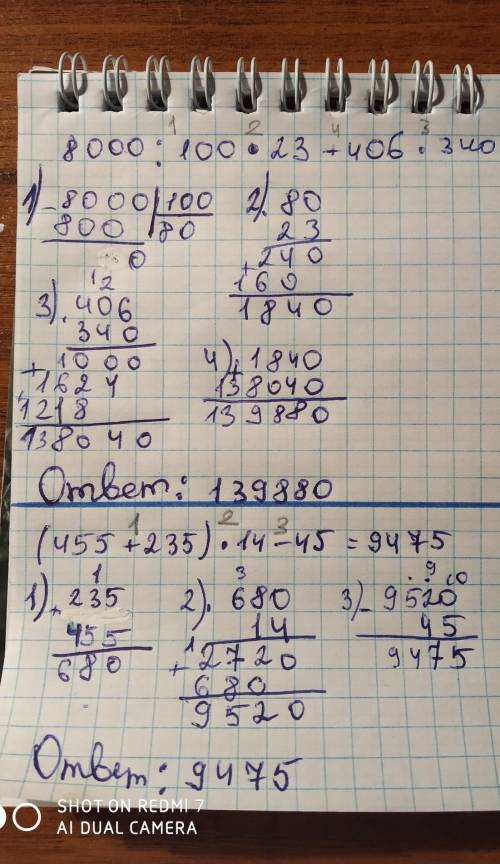 1 2 4 3
8000 : 100 • 23 + 406 • 340
1) -8000 | 100
800 | 80
0
2) . 80
23
+ 240
160
1840
12
3) . 406
340
+ 1000
1624
1218
138040
4) + 1840
138040
139880
Ответ: 139880
1 2 3
(455 + 235) • 14 - 45 = 9475
1
1) + 235
455
680
3
2) . 680
14
1
+ 2720
680
9520
. . 9 10
3) - 9520
45
9475
Ответ: 9475
SHOT ON REDMI 7
AI DUAL CAMERA